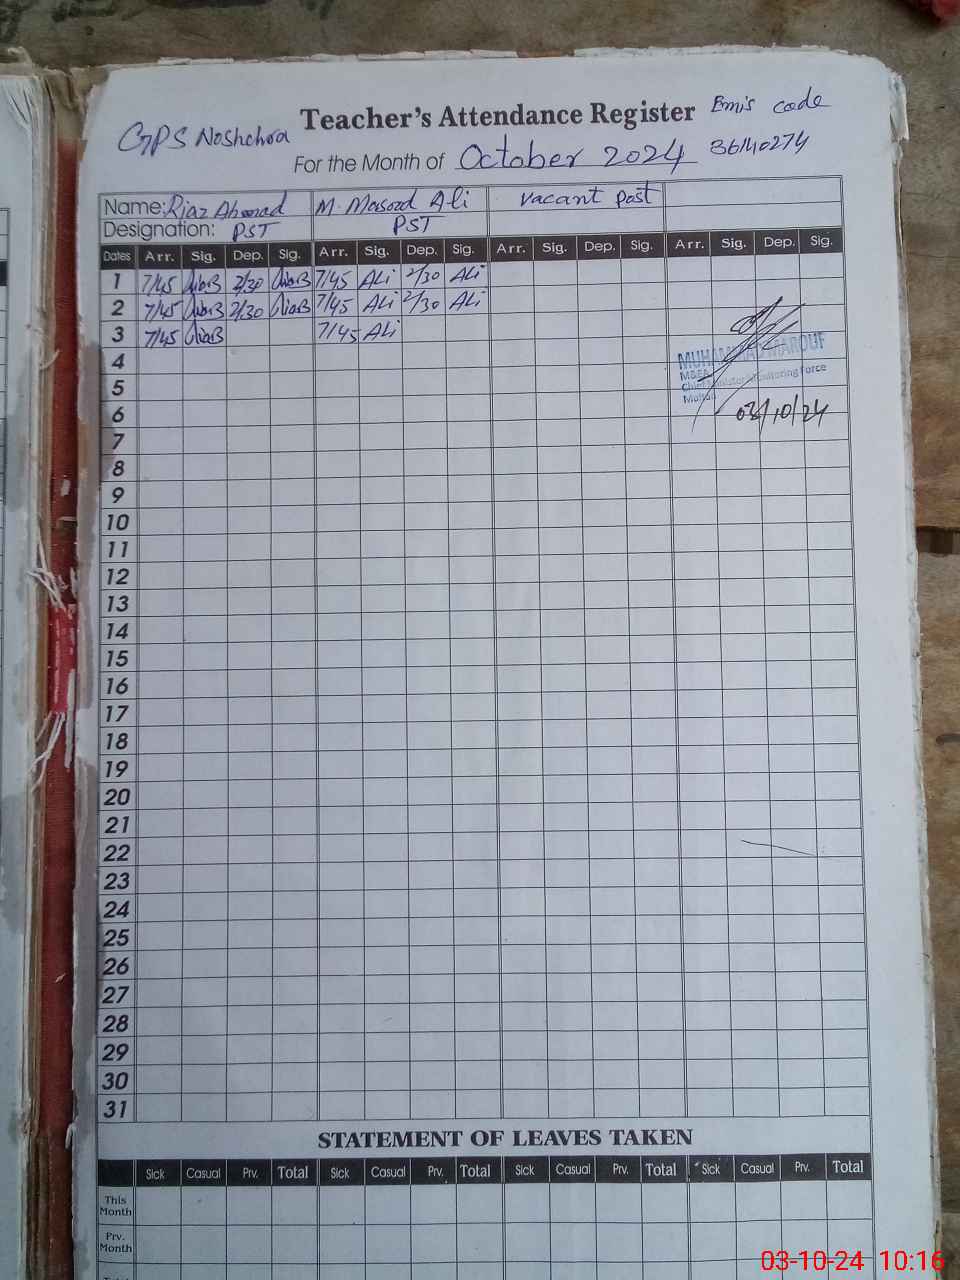 Teacher's Attendance Register Emis code
GPS Noshehra
For the Month of October 2024 36140274
Name: Riaz Ahmad M. Masood Ali Vacant Post
Designation: PST PST
Dates Arr. Sig. Dep. Sig. Arr. Sig. Dep. Sig. Arr. Sig. Dep. Sig. Arr. Sig. Dep. Sig.
1 7/45 2/30 7/45 Ali 2/30 Ali
2 7/45 2/30 7/45 Ali 2/30 Ali
3 7/45 7/45 Ali
4
5
6
7
8
9
10
11
12
13
14
15
16
17
18
19
20
21
22
23
24
25
26
27
28
29
30
31
MUHAMMAD MAROUF
M&EA
Chief Minister Monitoring Force
Multan
03/10/24
STATEMENT OF LEAVES TAKEN
Sick Casual Prv. Total Sick Casual Prv. Total Sick Casual Prv. Total Sick Casual Prv. Total
This
Month
Prv.
Month
03-10-24 10:16